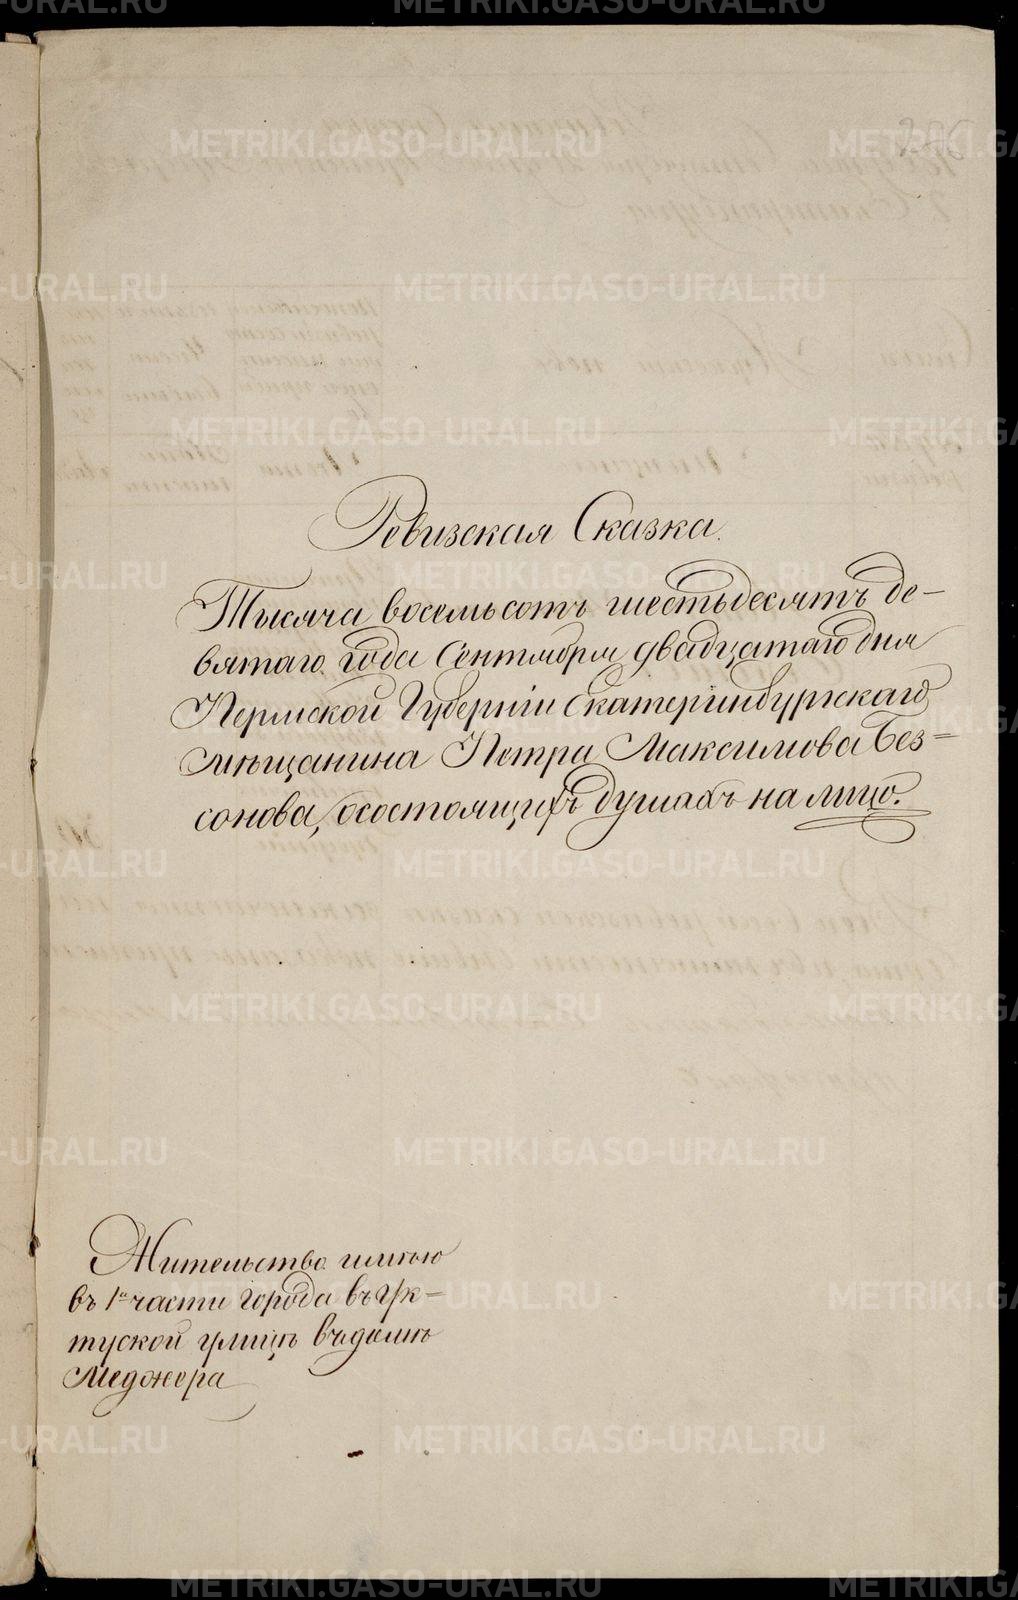 Ревизская Сказка.
Тысяча восемьсотъ шестьдесятъ де-
вятаго года Сентября двадцатаго дня
Пермской Губерніи Екатеринбургскаго
мѣщанина Петра Максимова Без-
сонова, осостоящихъ душахъ на лицо.
Жительство имѣю
въ 1й части города въ Ук-
туской улицѣ въ домѣ
Меджера
METRIKI.GASO-URAL.RU